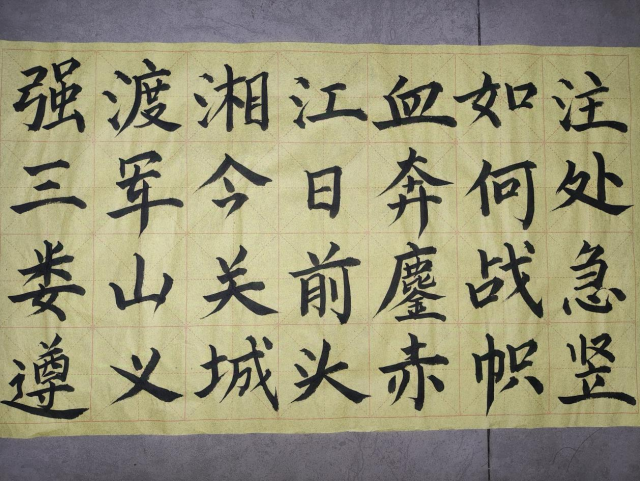 强渡湘江血如注
三军今日奔何处
娄山关前鏖战急
遵义城头赤帜竖